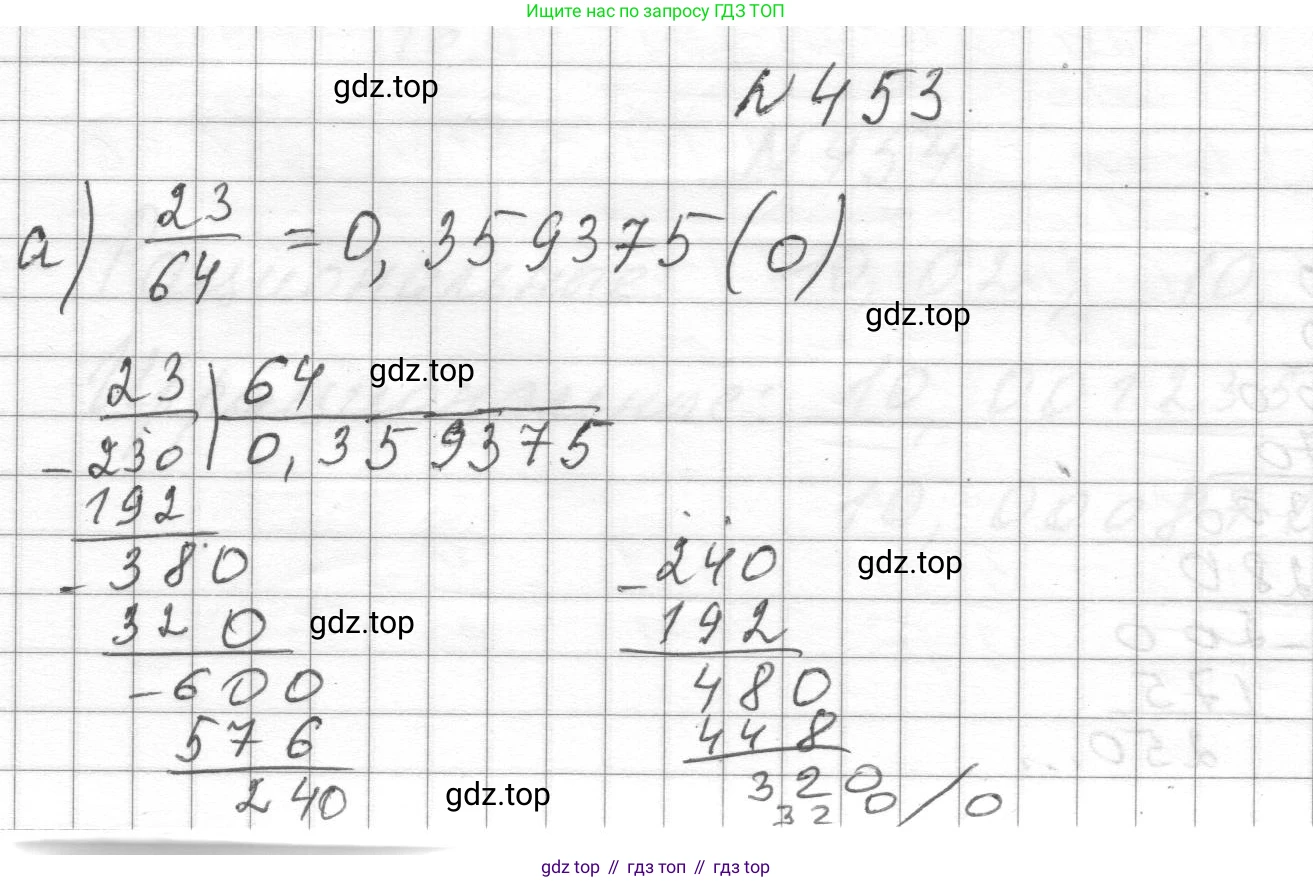 Ищите нас по запросу ГДЗ ТОП
gdz.top
N 453
а) 23/64 = 0,359375(0)
gdz.top
23 | 64
gdz.top
- 230 | 0,359375
192
- 380
320
gdz.top
- 600
576
240
- 240
gdz.top
192
480
448
320
320 / 0
gdz.top
gdz top // гдз топ // гдз top